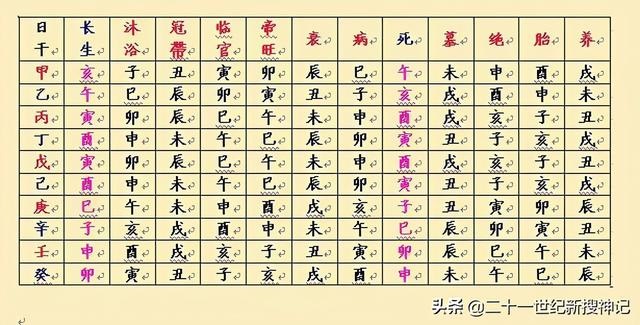 日干 长生 沐浴 冠帶 临官 帝旺 衰 病 死 墓 绝 胎 养
甲 亥 子 丑 寅 卯 辰 巳 午 未 申 酉 戌
乙 午 巳 辰 卯 寅 丑 子 亥 戌 酉 申 未
丙 寅 卯 辰 巳 午 未 申 酉 戌 亥 子 丑
丁 酉 申 未 午 巳 辰 卯 寅 丑 子 亥 戌
戊 寅 卯 辰 巳 午 未 申 酉 戌 亥 子 丑
己 酉 申 未 午 巳 辰 卯 寅 丑 子 亥 戌
庚 巳 午 未 申 酉 戌 亥 子 丑 寅 卯 辰
辛 子 亥 戌 酉 申 未 午 巳 辰 卯 寅 丑
壬 申 酉 戌 亥 子 丑 寅 卯 辰 巳 午 未
癸 卯 寅 丑 子 亥 戌 酉 申 未 午 巳 辰
头条 @二十一世纪新搜神记